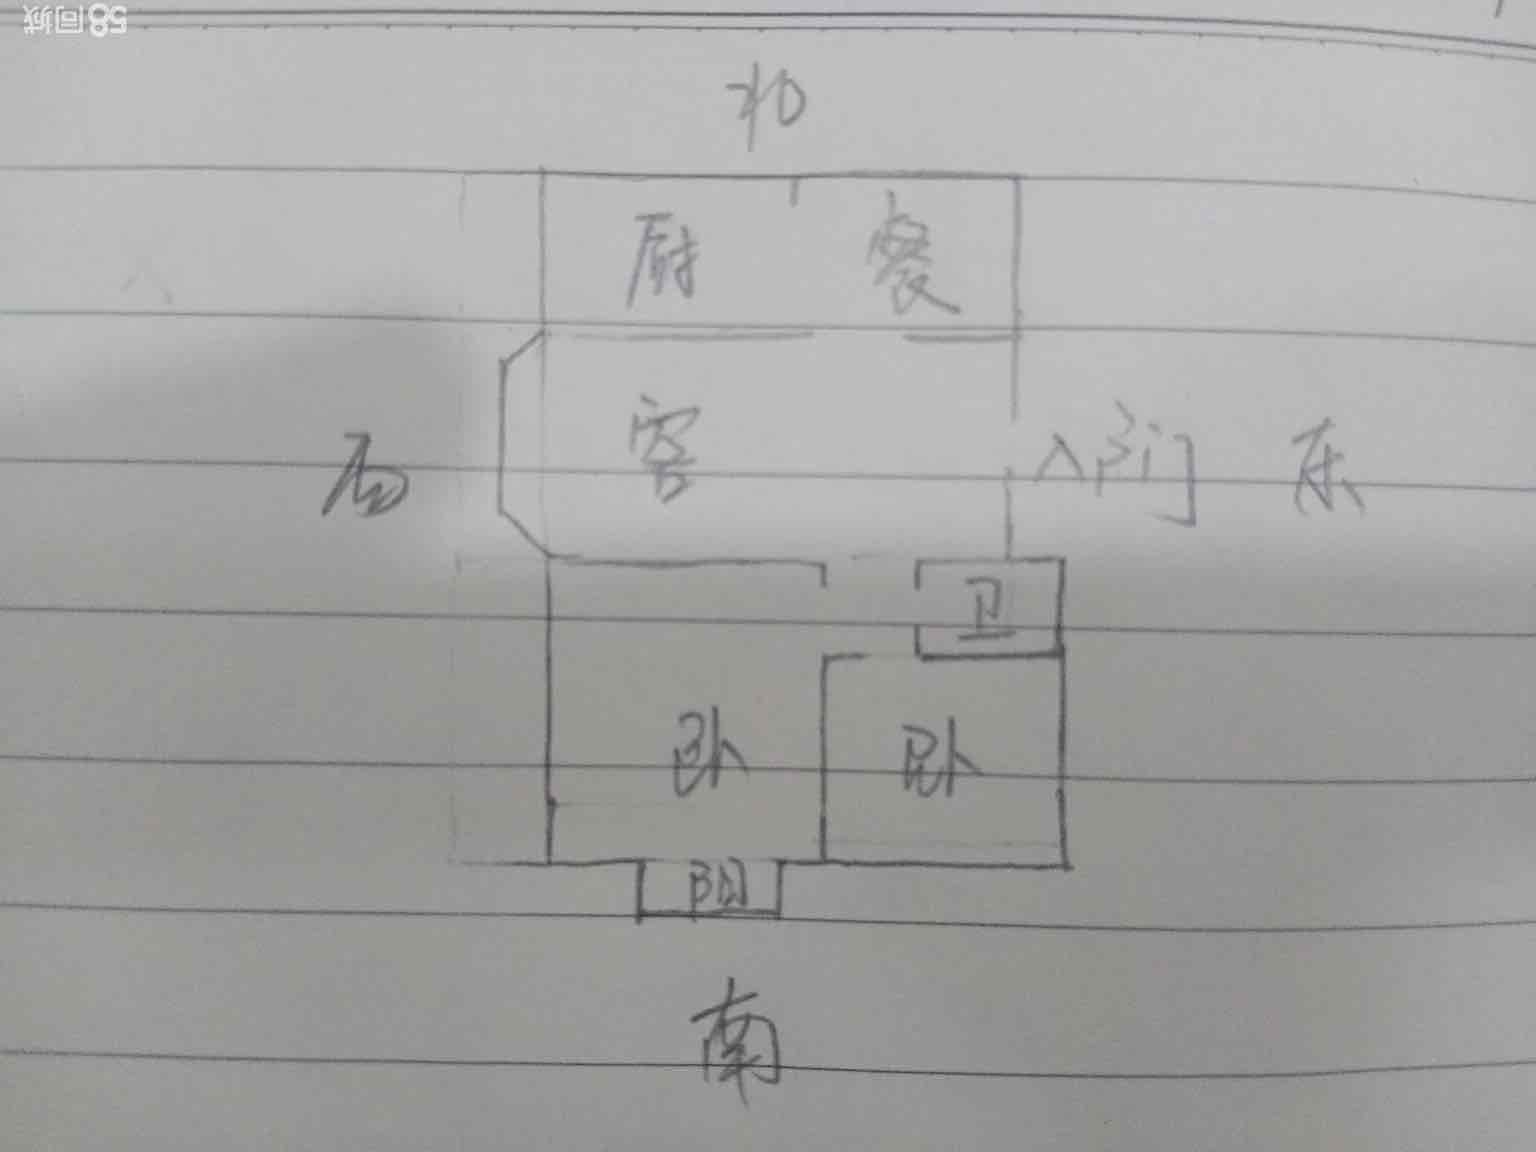 58同城
北
厨 餐
西 客 入户门 东
卫
卧 卧
阳
南